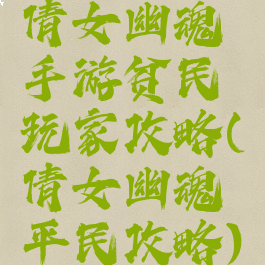 倩女幽魂
手游贫民
玩家攻略(
倩女幽魂
平民攻略)